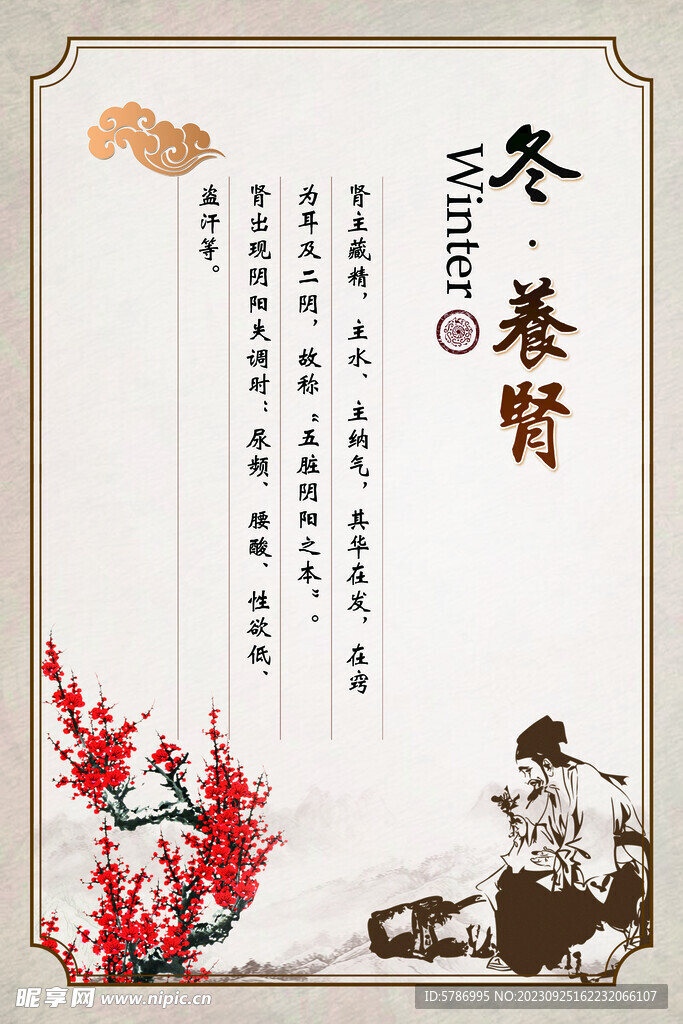 冬·養腎
Winter
肾主藏精，主水、主纳气，其华在发，在窍
为耳及二阴，故称“五脏阴阳之本”。
肾出现阴阳失调时：尿频、腰酸、性欲低、
盗汗等。
昵享网 www.nipic.cn
ID:5786995 NO:20230925162232066107